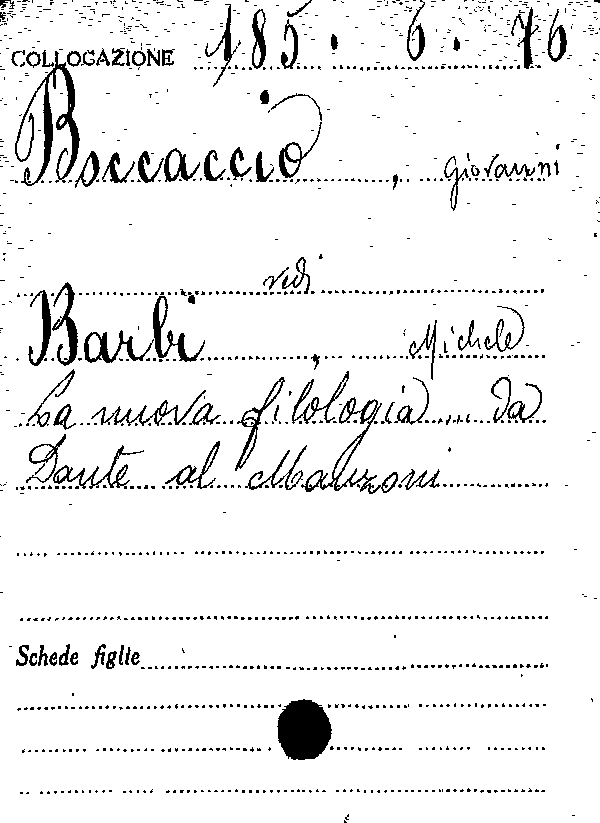 COLLOCAZIONE 185. 6. 76
Boccaccio, Giovanni
vedi
Barbi, Michele
La nuova filologia... da
Dante al Manzoni
Schede figlie